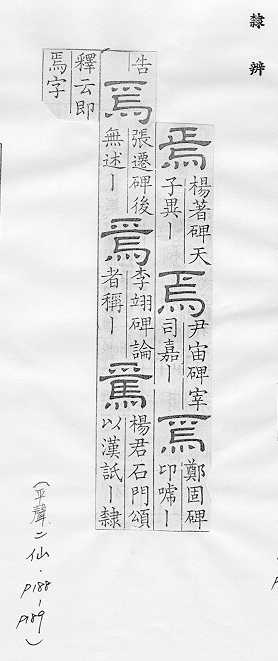 隸辨
焉 楊著碑天
子異丨
焉 尹宙碑宰
司嘉丨
焉 鄭固碑
印啼丨
告
焉 張遷碑後
無述丨
焉 李翊碑論
者稱丨
焉 楊君石門頌
以漢詆丨隸
釋云即
焉字
(平聲二仙·P188-P189)